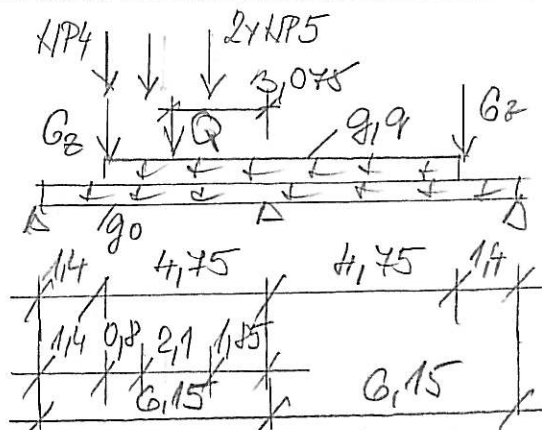 NP4 2xNP5
3,075
Gz Q g,q Gz
g0
1,4 4,75 4,75 1,4
1,4 0,8 2,1 1,85
6,15 6,15